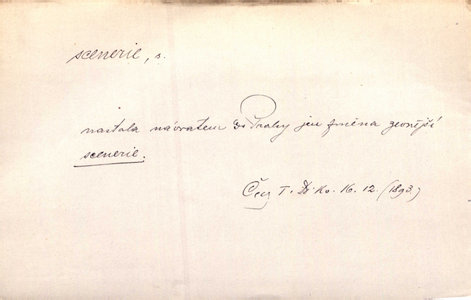 scenerie, s.
nastala návratem do Prahy jen změna zevnější
scenerie.
Čas T. 16. 12. (1893)